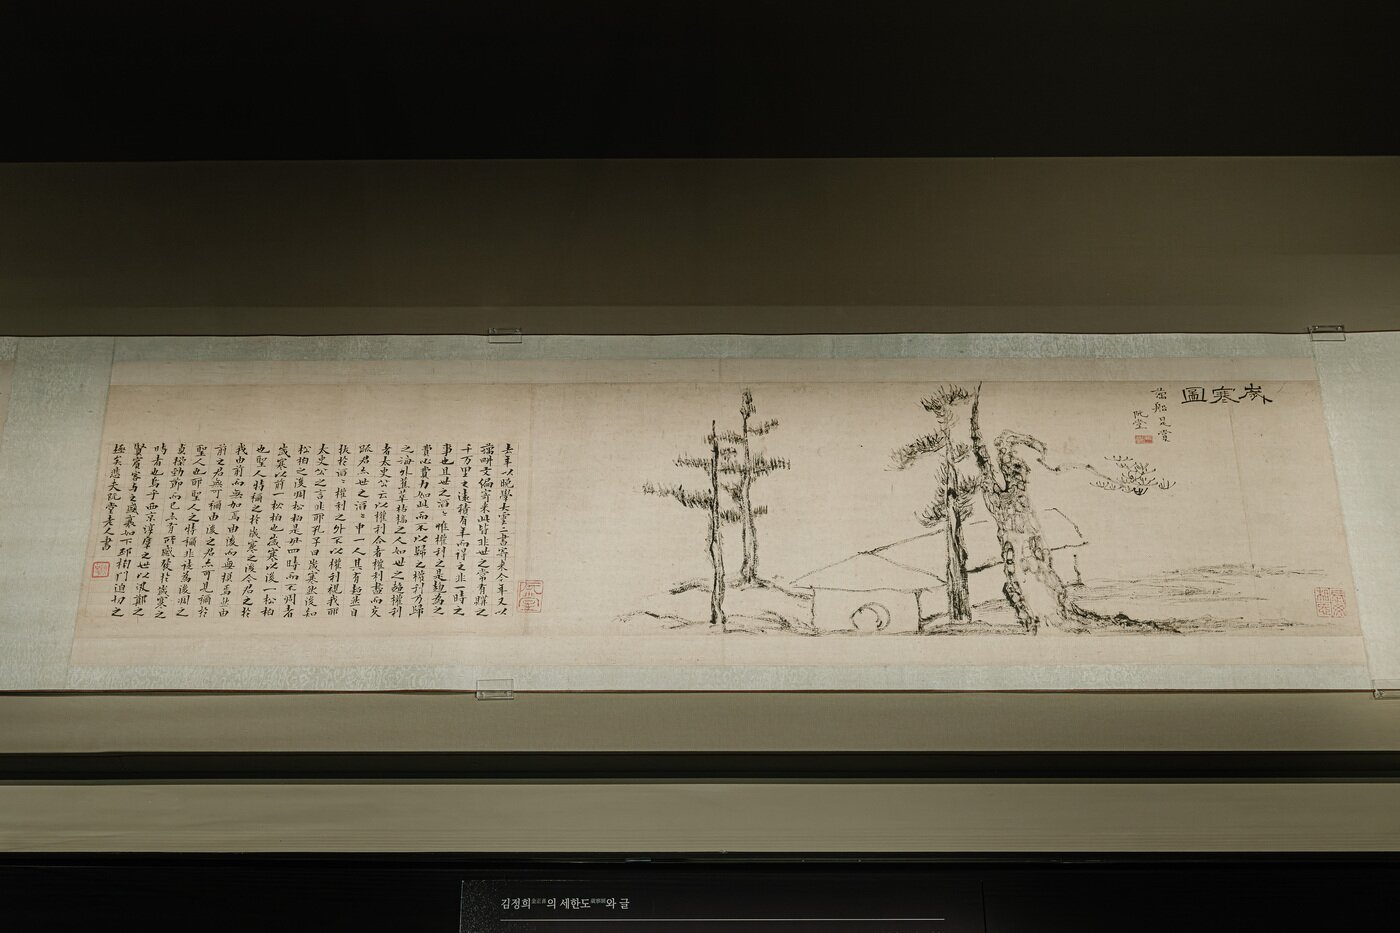 歲寒圖
藕船是賞
阮堂
去年以晚學大雲二書寄來今年又以
藕耕文編寄來此皆非世之常有購之
千万里之遠積有年而得之非一時之
事也且世之滔〻惟權利之是趨為之
費心費力如此而不以歸之權利乃歸
之海外蕉萃枯槁之人如世之趨權利
者太史公云以權利合者權利盡而交
踈君亦世之滔〻中一人其有超然自
拔於滔〻權利之外不以權利視我耶
太史公之言非耶孔子曰歲寒然後知
松柏之後凋松柏是毋四時而不凋者
歲寒以前一松柏也歲寒以後一松柏
也聖人特稱之於歲寒之後今君之於
我由前而無加焉由後而無損焉然由
前之君無可稱由後之君亦可見稱於
聖人也耶聖人之特稱非徒為後凋之
貞操勁節而已亦有所感發於歲寒之
時者也烏乎西京淳厚之世以汲鄭之
賢賓客與之盛衰如下邳榜門迫切之
極矣悲夫阮堂老人書
阮堂
김정희金正喜의 세한도歲寒圖와 글